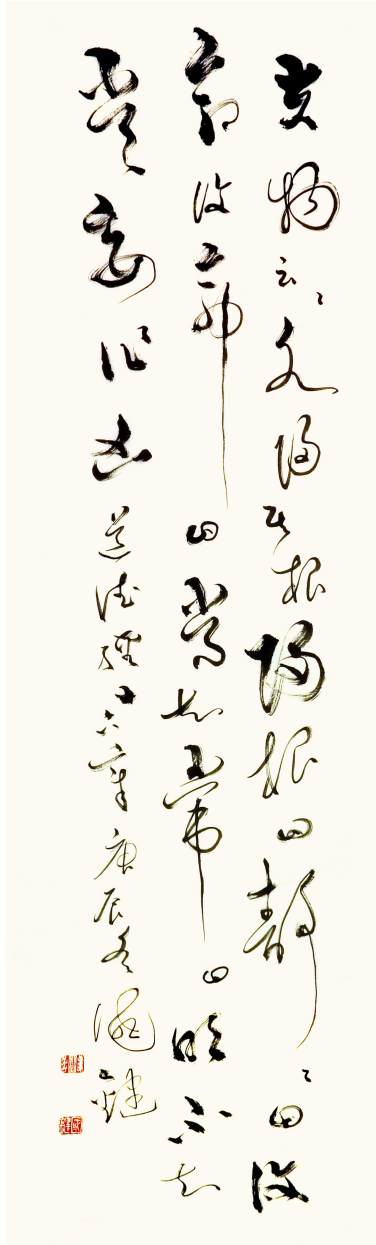 夫物云〻各歸其根歸根曰靜〻曰復
命復命曰常知常曰明不知
常妄作凶道德經十六章庚辰冬